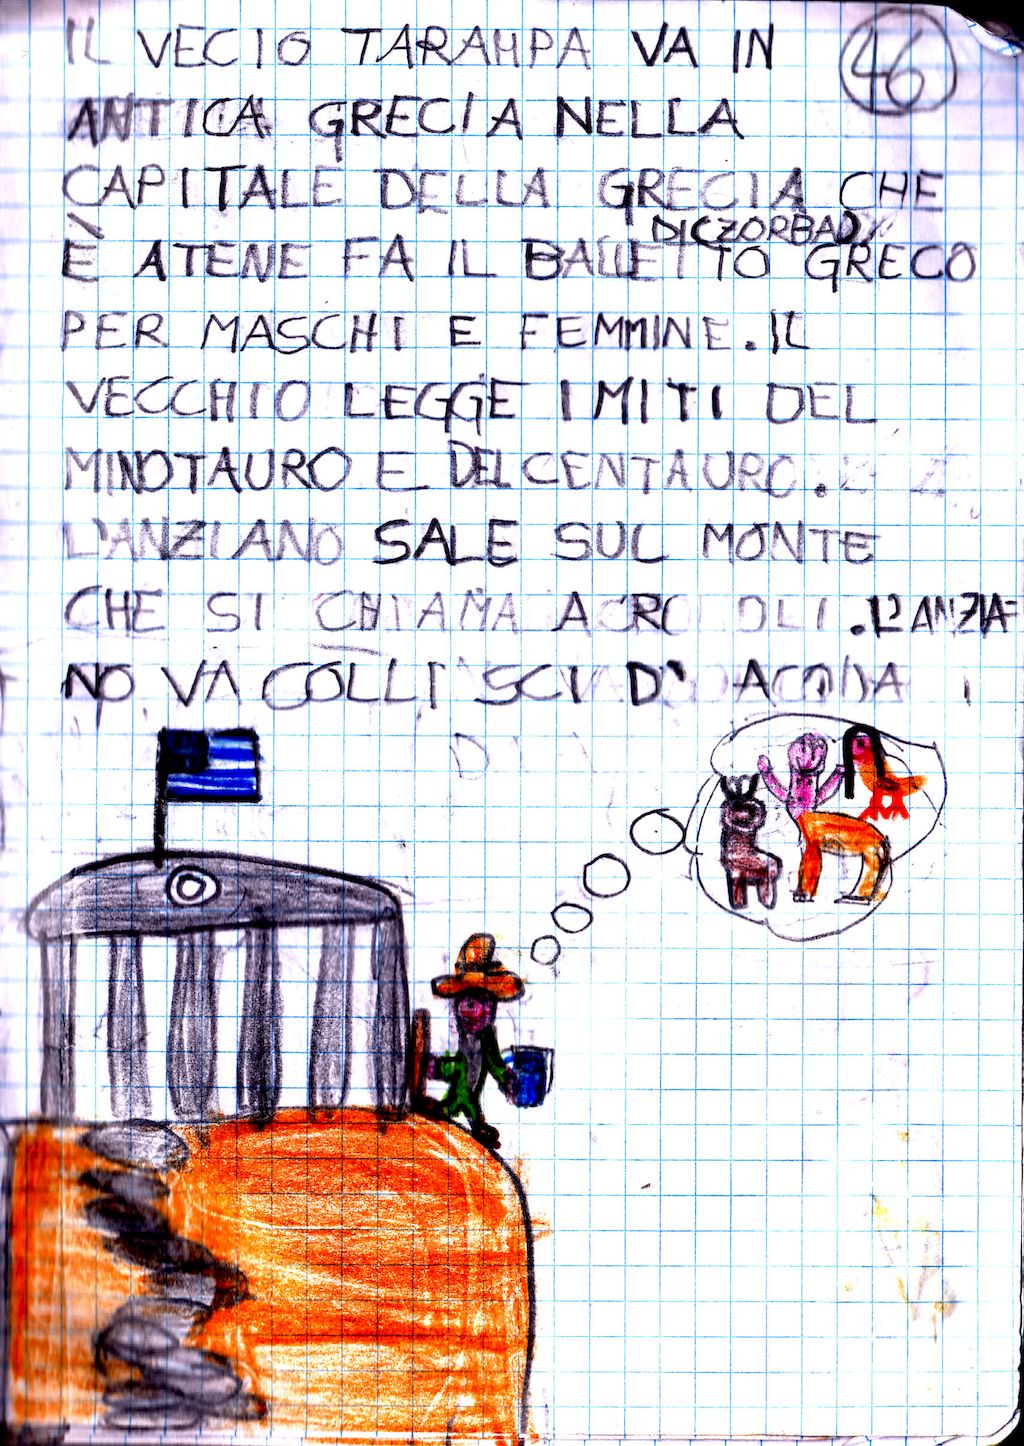 IL VECIO TARAMPA VA IN
46
ANTICA GRECIA NELLA
CAPITALE DELLA GRECIA CHE
DICZORBAD
È ATENE FA IL BALLETTO GRECO
PER MASCHI E FEMMINE. IL
VECCHIO LEGGE I MITI DEL
MINOTAURO E DEL CENTAURO.
L'ANZIANO SALE SUL MONTE
CHE SI CHIAMA ACROPOLI. L'ANZIA=
NO VA COLLI SCI D' ACQUA